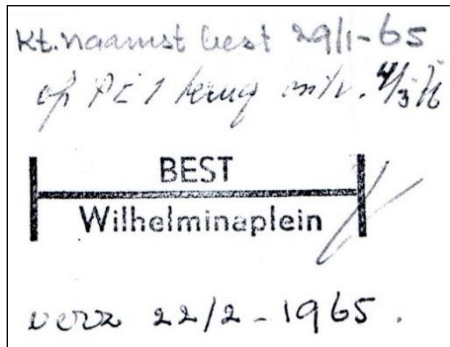 Kt. naamst best 29/1-65
op PE 1 terug ontv. 4/3
BEST
Wilhelminaplein
verz 22/2-1965.